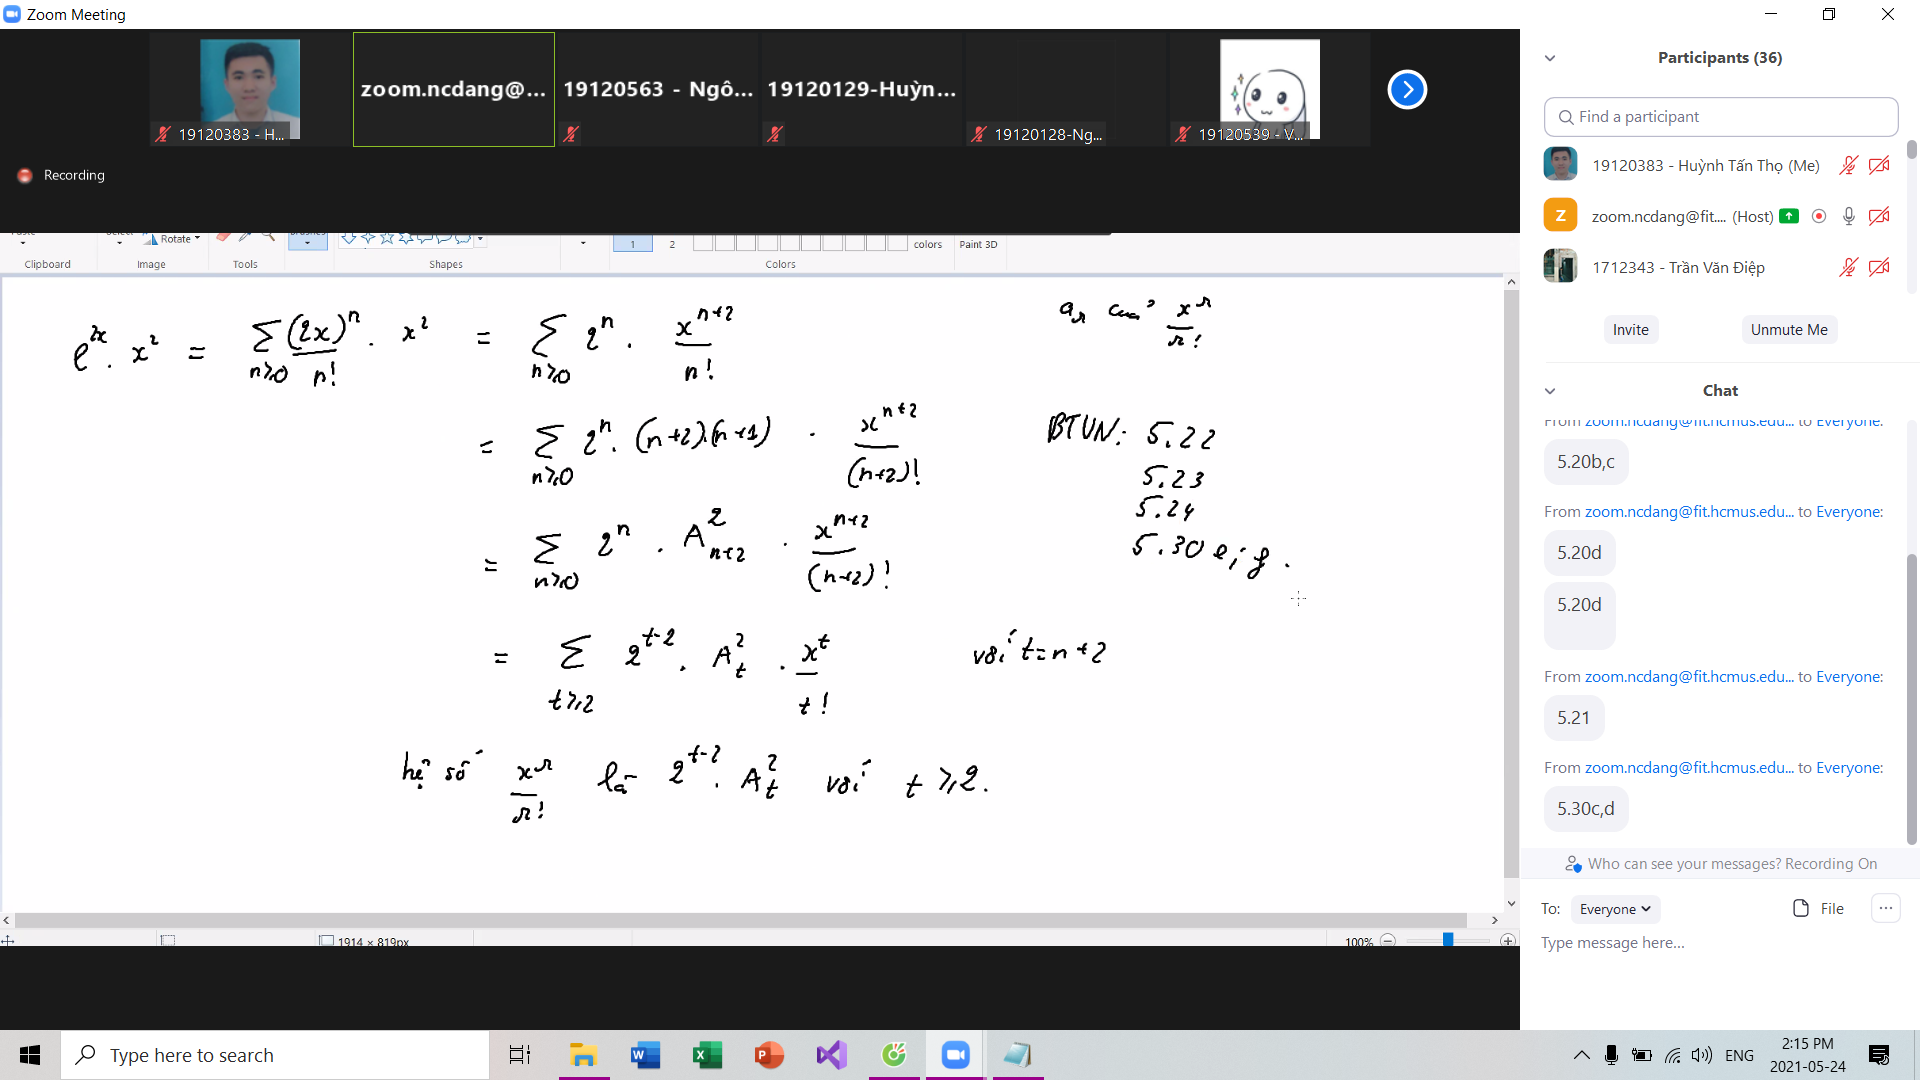 Zoom Meeting
19120383 - H...
zoom.ncdang@...
19120563 - Ngô...
19120129-Huỳn...
19120128-Ng...
19120539 - V...
Recording
Rotate
1
2
colors
Paint 3D
Clipboard
Image
Tools
Shapes
Colors
e^{2x} . x^2 = ∑_{n≥0} (2x)^n / n! . x^2 = ∑_{n≥0} 2^n . x^{n+2} / n!
a_r của x^r / r!
= ∑_{n≥0} 2^n . (n+2).(n+1) . x^{n+2} / (n+2)!
= ∑_{n≥0} 2^n . A^2_{n+2} . x^{n+2} / (n+2)!
= ∑_{t≥2} 2^{t-2} . A^2_t . x^t / t! với t = n+2
hệ số x^r / r! là 2^{t-2} . A^2_t với t ≥ 2.
BTVN: 5.22
5.23
5.24
5.30 e, f, g.
1914 × 819px
100%
Participants (36)
Find a participant
19120383 - Huỳnh Tấn Thọ (Me)
Z
zoom.ncdang@fit.... (Host)
1712343 - Trần Văn Điệp
Invite
Unmute Me
Chat
From zoom.ncdang@fit.hcmus.edu... to Everyone:
5.20b,c
From zoom.ncdang@fit.hcmus.edu... to Everyone:
5.20d
5.20d
From zoom.ncdang@fit.hcmus.edu... to Everyone:
5.21
From zoom.ncdang@fit.hcmus.edu... to Everyone:
5.30c,d
Who can see your messages? Recording On
To: Everyone
File
Type message here...
Type here to search
ENG
2:15 PM
2021-05-24